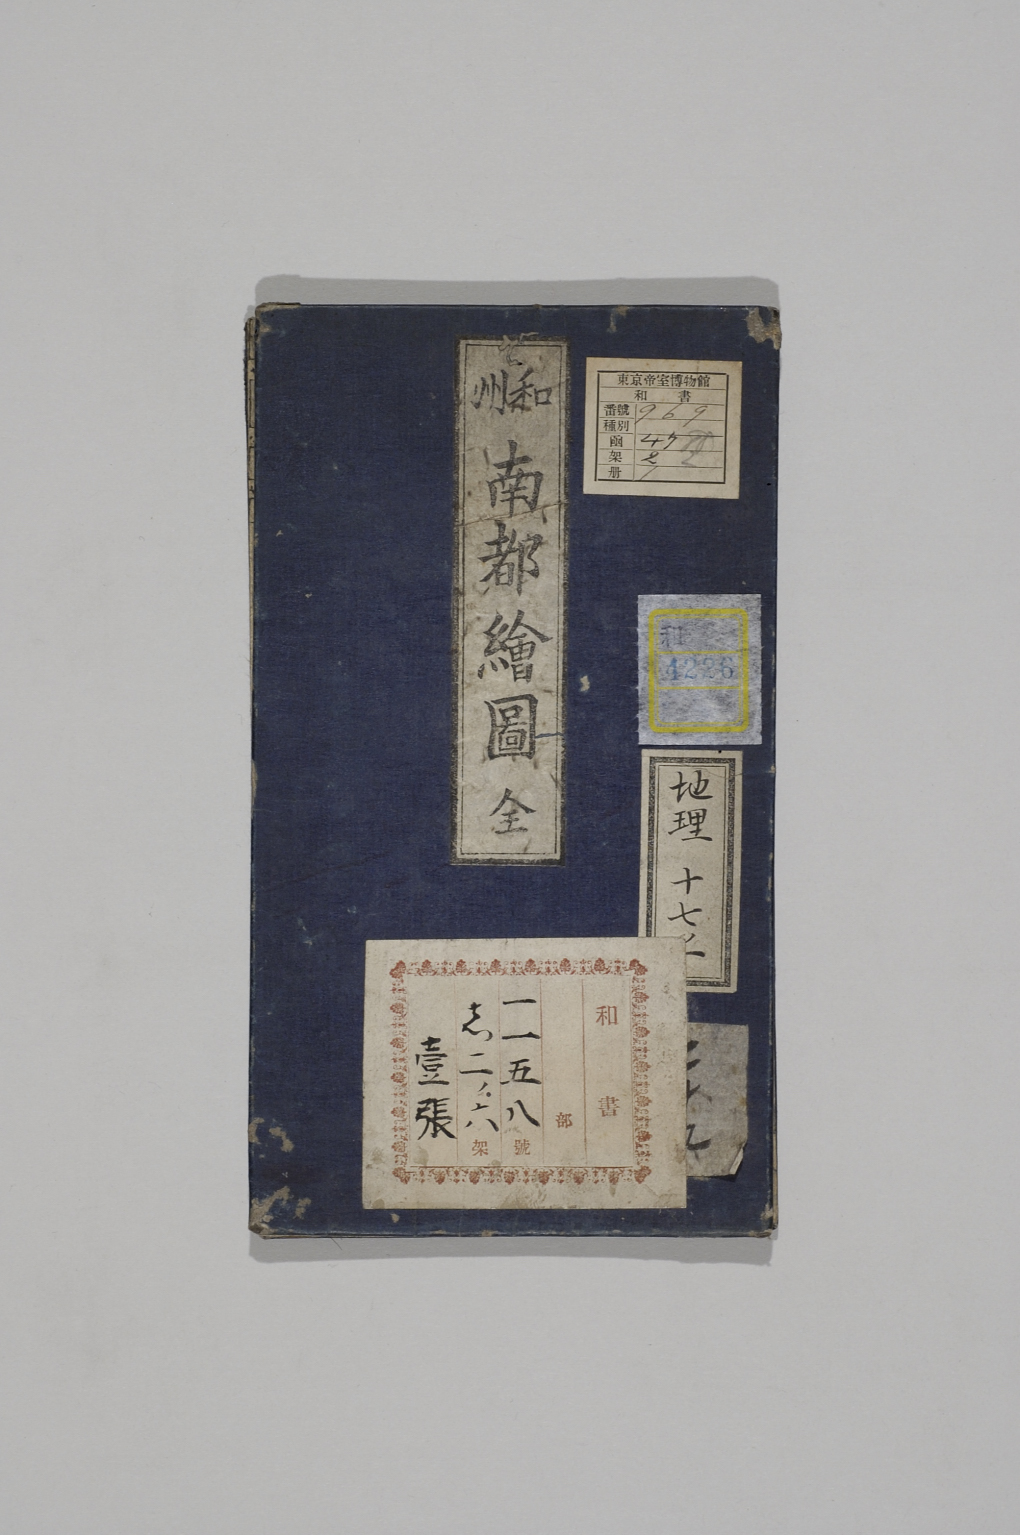 和州
南都繪圖 全
東京帝室博物館
和書
番號 969
種別
函 47
架 2
册 1
和
4286
地理 十七
和書
部
一一五八 號
二ノ六 架
壹張